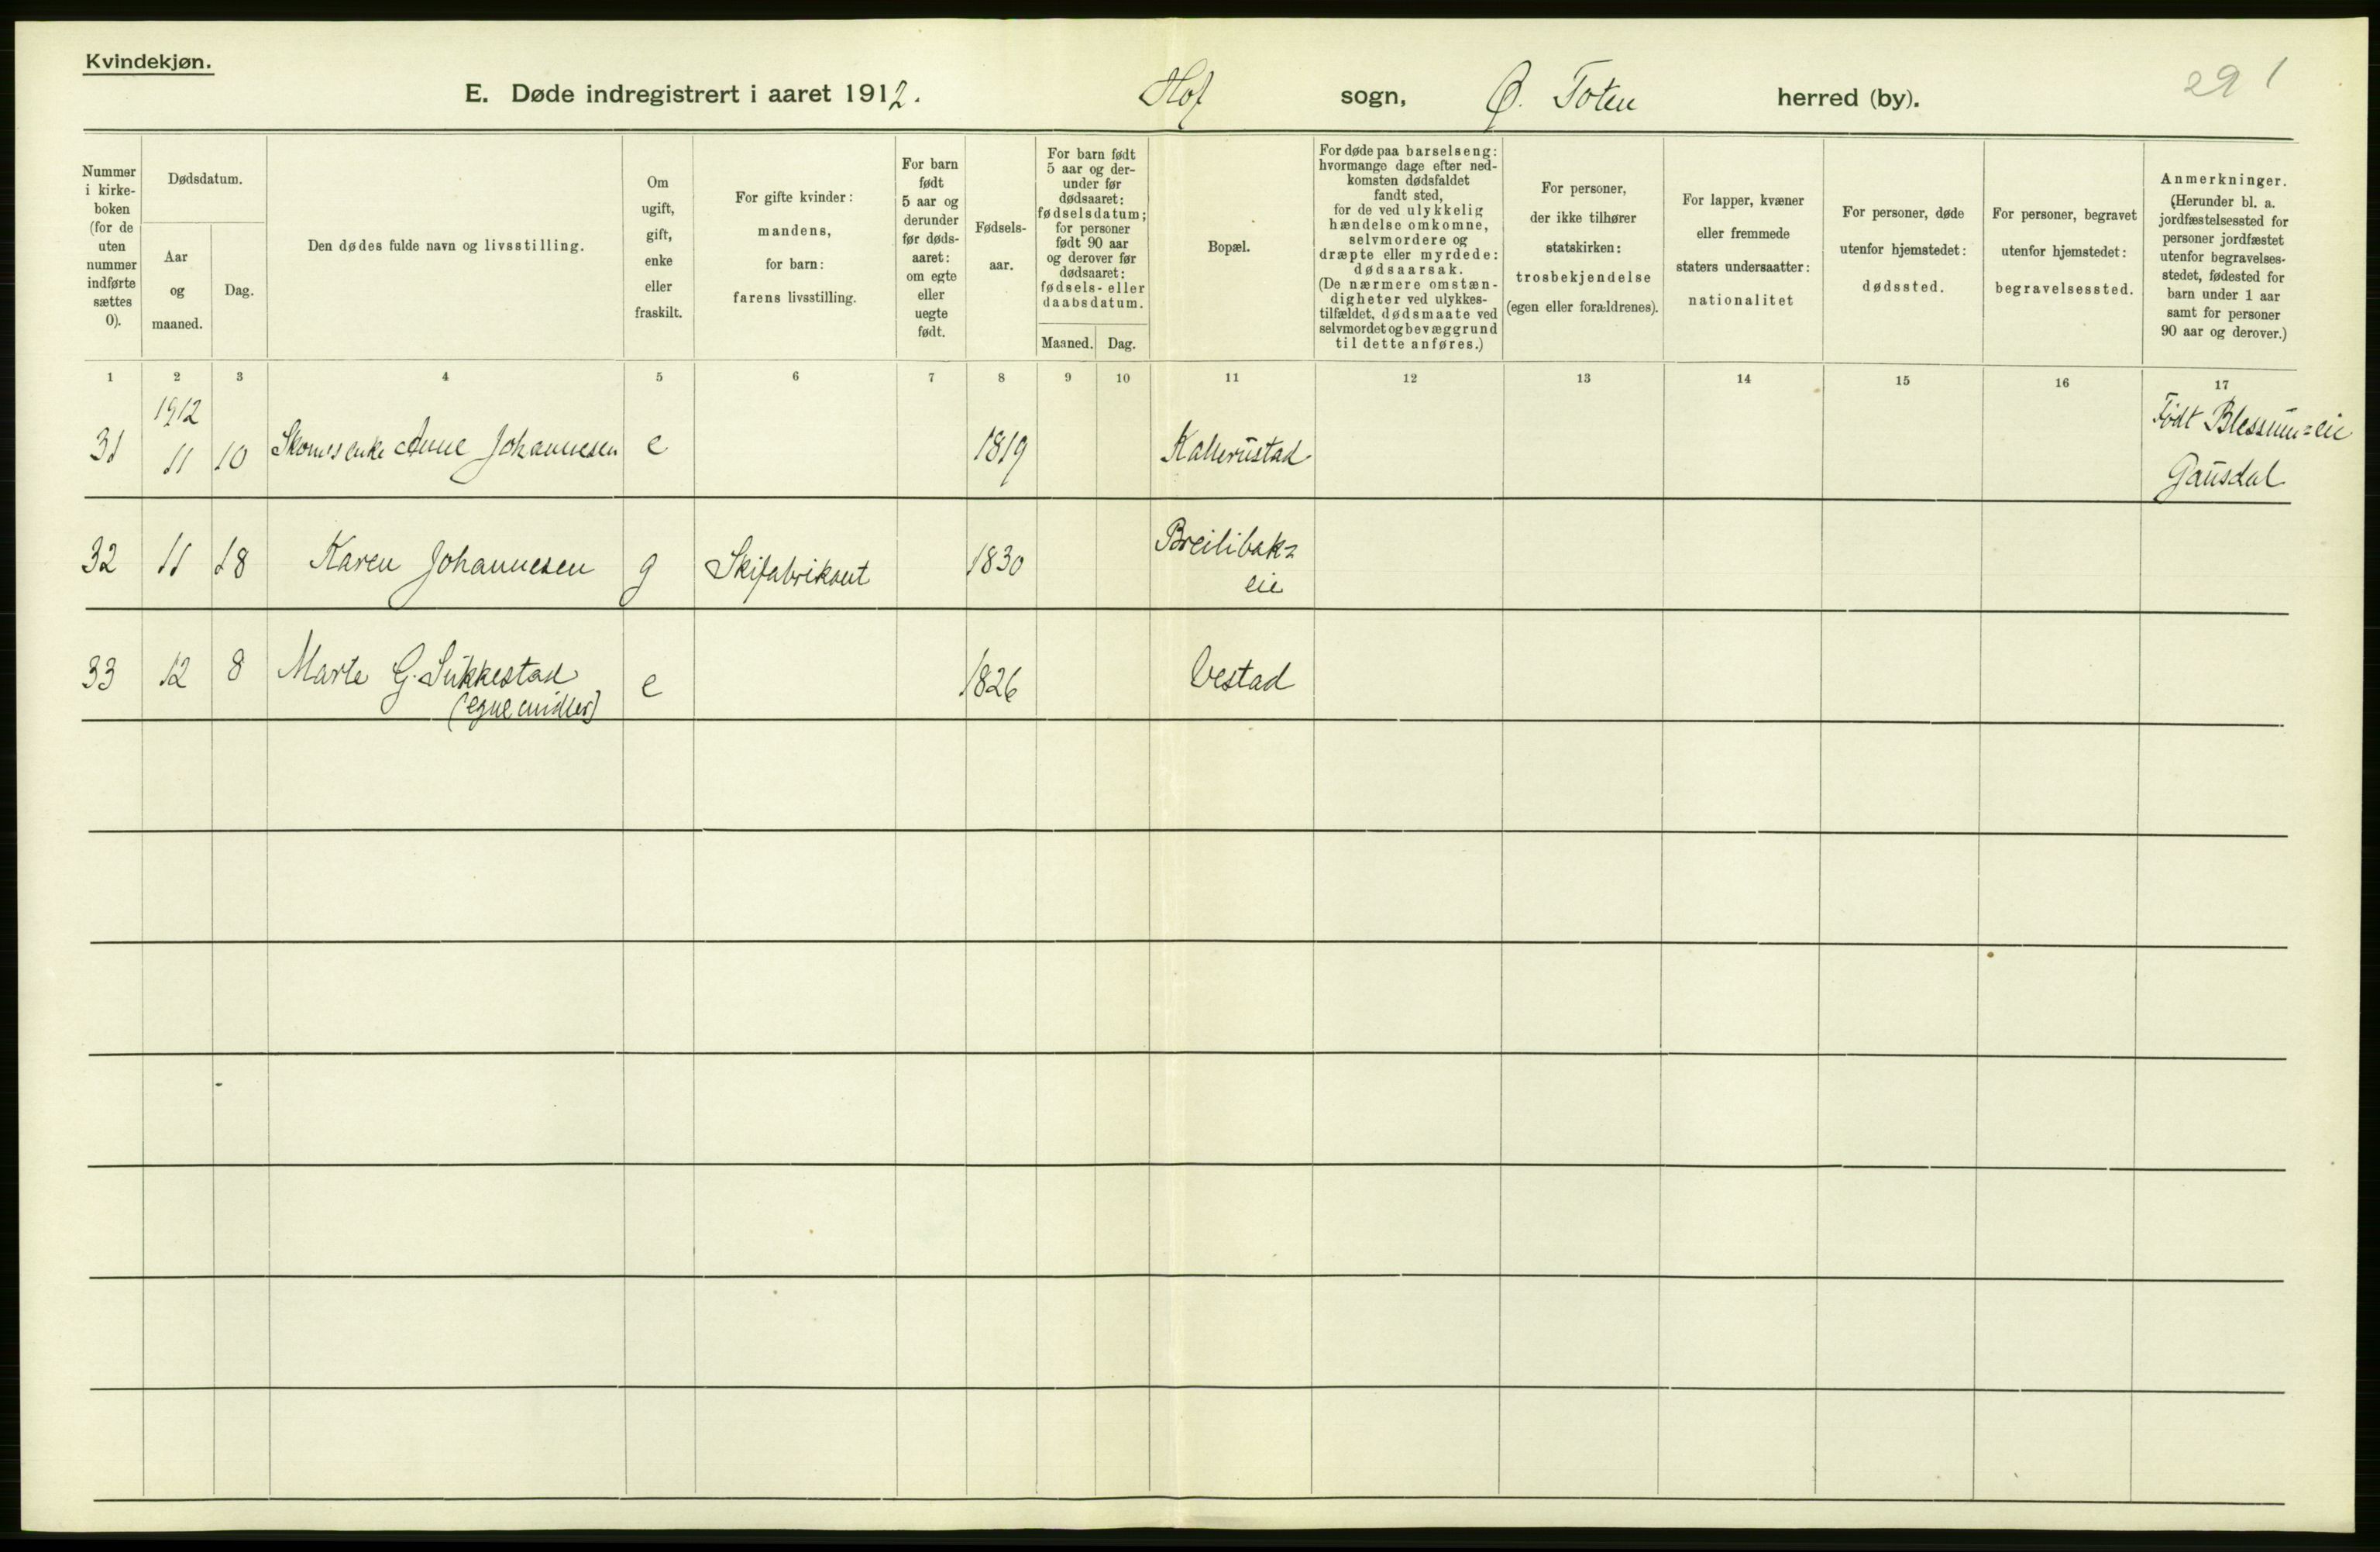 Kvindekjøn.
E. Døde indregistrert i aaret 1912. Hof sogn, Ø. Toten herred (by). 291
Nummer
i kirke-
boken
(for de
uten
nummer
indførte
sættes
0).
Dødsdatum.
Aar
og
maaned.
Dag.
Den dødes fulde navn og livsstilling.
Om
ugift,
gift,
enke
eller
fraskilt.
For gifte kvinder:
mandens,
for barn:
farens livsstilling.
For barn
født
5 aar og
derunder
før døds-
aaret:
om egte
eller
uegte
født.
Fødsels-
aar.
For barn født
5 aar og der-
under før
dødsaaret:
fødselsdatum;
for personer
født 90 aar
og derover før
dødsaaret:
fødsels- eller
daabsdatum.
Maaned. Dag.
Bopæl.
For døde paa barselseng:
hvormange dage efter ned-
komsten dødsfaldet
fandt sted,
for de ved ulykkelig
hændelse omkomne,
selvmordere og
dræpte eller myrdede:
dødsaarsak.
(De nærmere omstæn-
digheter ved ulykkes-
tilfældet, dødsmaate ved
selvmordet og bevæggrund
til dette anføres.)
For personer,
der ikke tilhører
statskirken:
trosbekjendelse
(egen eller forældrenes).
For lapper, kvæner
eller fremmede
staters undersaatter:
nationalitet
For personer, døde
utenfor hjemstedet:
dødssted.
For personer, begravet
utenfor hjemstedet:
begravelsessted.
Anmerkninger.
(Herunder bl. a.
jordfæstelsessted for
personer jordfæstet
utenfor begravelses-
stedet, fødested for
barn under 1 aar
samt for personer
90 aar og derover.)
1 2 3 4 5 6 7 8 9 10 11 12 13 14 15 16 17
1912
31 11 10 enke Anne Johannesen e 1819 Kallerustad Født Blessum=eie
Gausdal
32 11 18 Karen Johannesen g Skifabrikant 1830 Breilibak=
eie
33 12 8 Marte G. Sukkestad e 1826 Vestad
(egne midler)